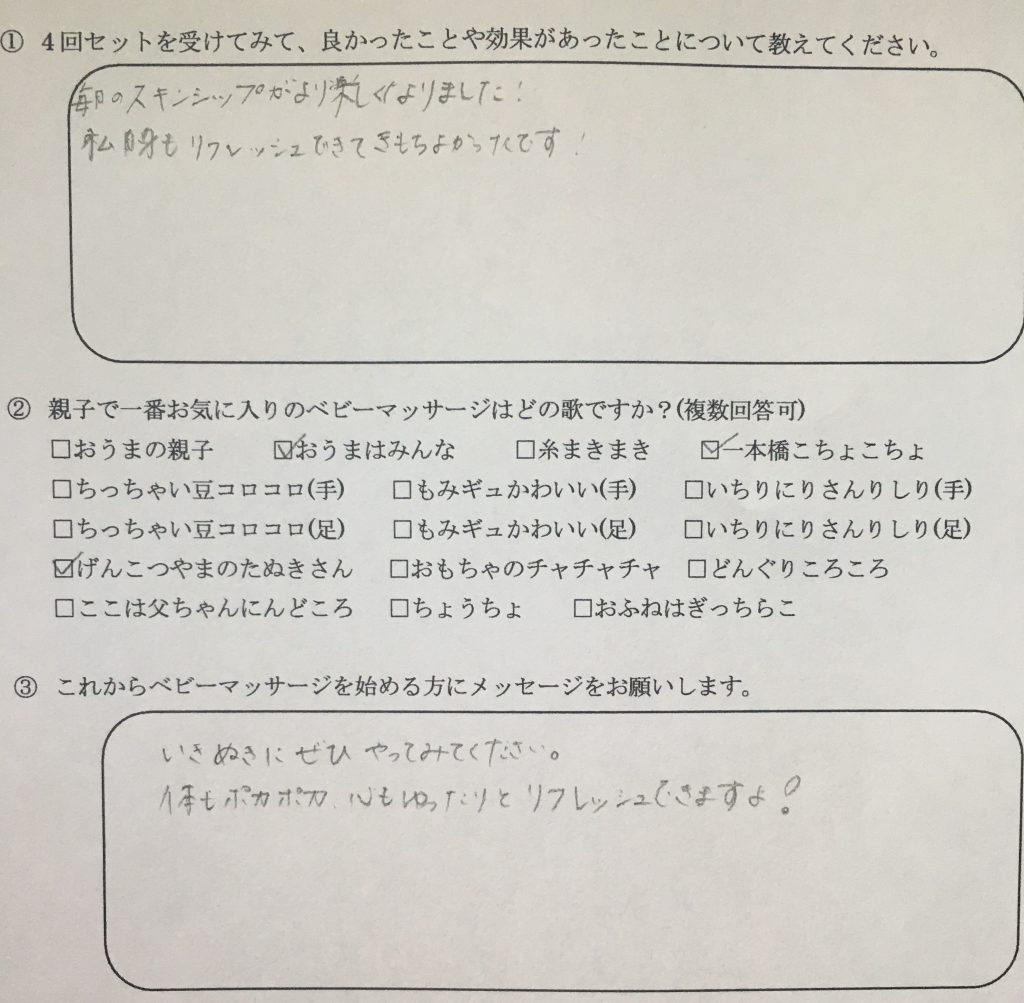 ① 4回セットを受けてみて、良かったことや効果があったことについて教えてください。
毎日のスキンシップがより楽しくなりました!
私自身もリフレッシュできてきもちよかったです!
② 親子で一番お気に入りのベビーマッサージはどの歌ですか?(複数回答可)
□おうまの親子 ☑おうまはみんな □糸まきまき ☑一本橋こちょこちょ
□ちっちゃい豆コロコロ(手) □もみギュかわいい(手) □いちりにりさんりしり(手)
□ちっちゃい豆コロコロ(足) □もみギュかわいい(足) □いちりにりさんりしり(足)
☑げんこつやまのたぬきさん □おもちゃのチャチャチャ □どんぐりころころ
□ここは父ちゃんにんどころ □ちょうちょ □おふねはぎっちらこ
③ これからベビーマッサージを始める方にメッセージをお願いします。
いきぬきにぜひやってみてください。
体もポカポカ、心もゆったりとリフレッシュできますよ!